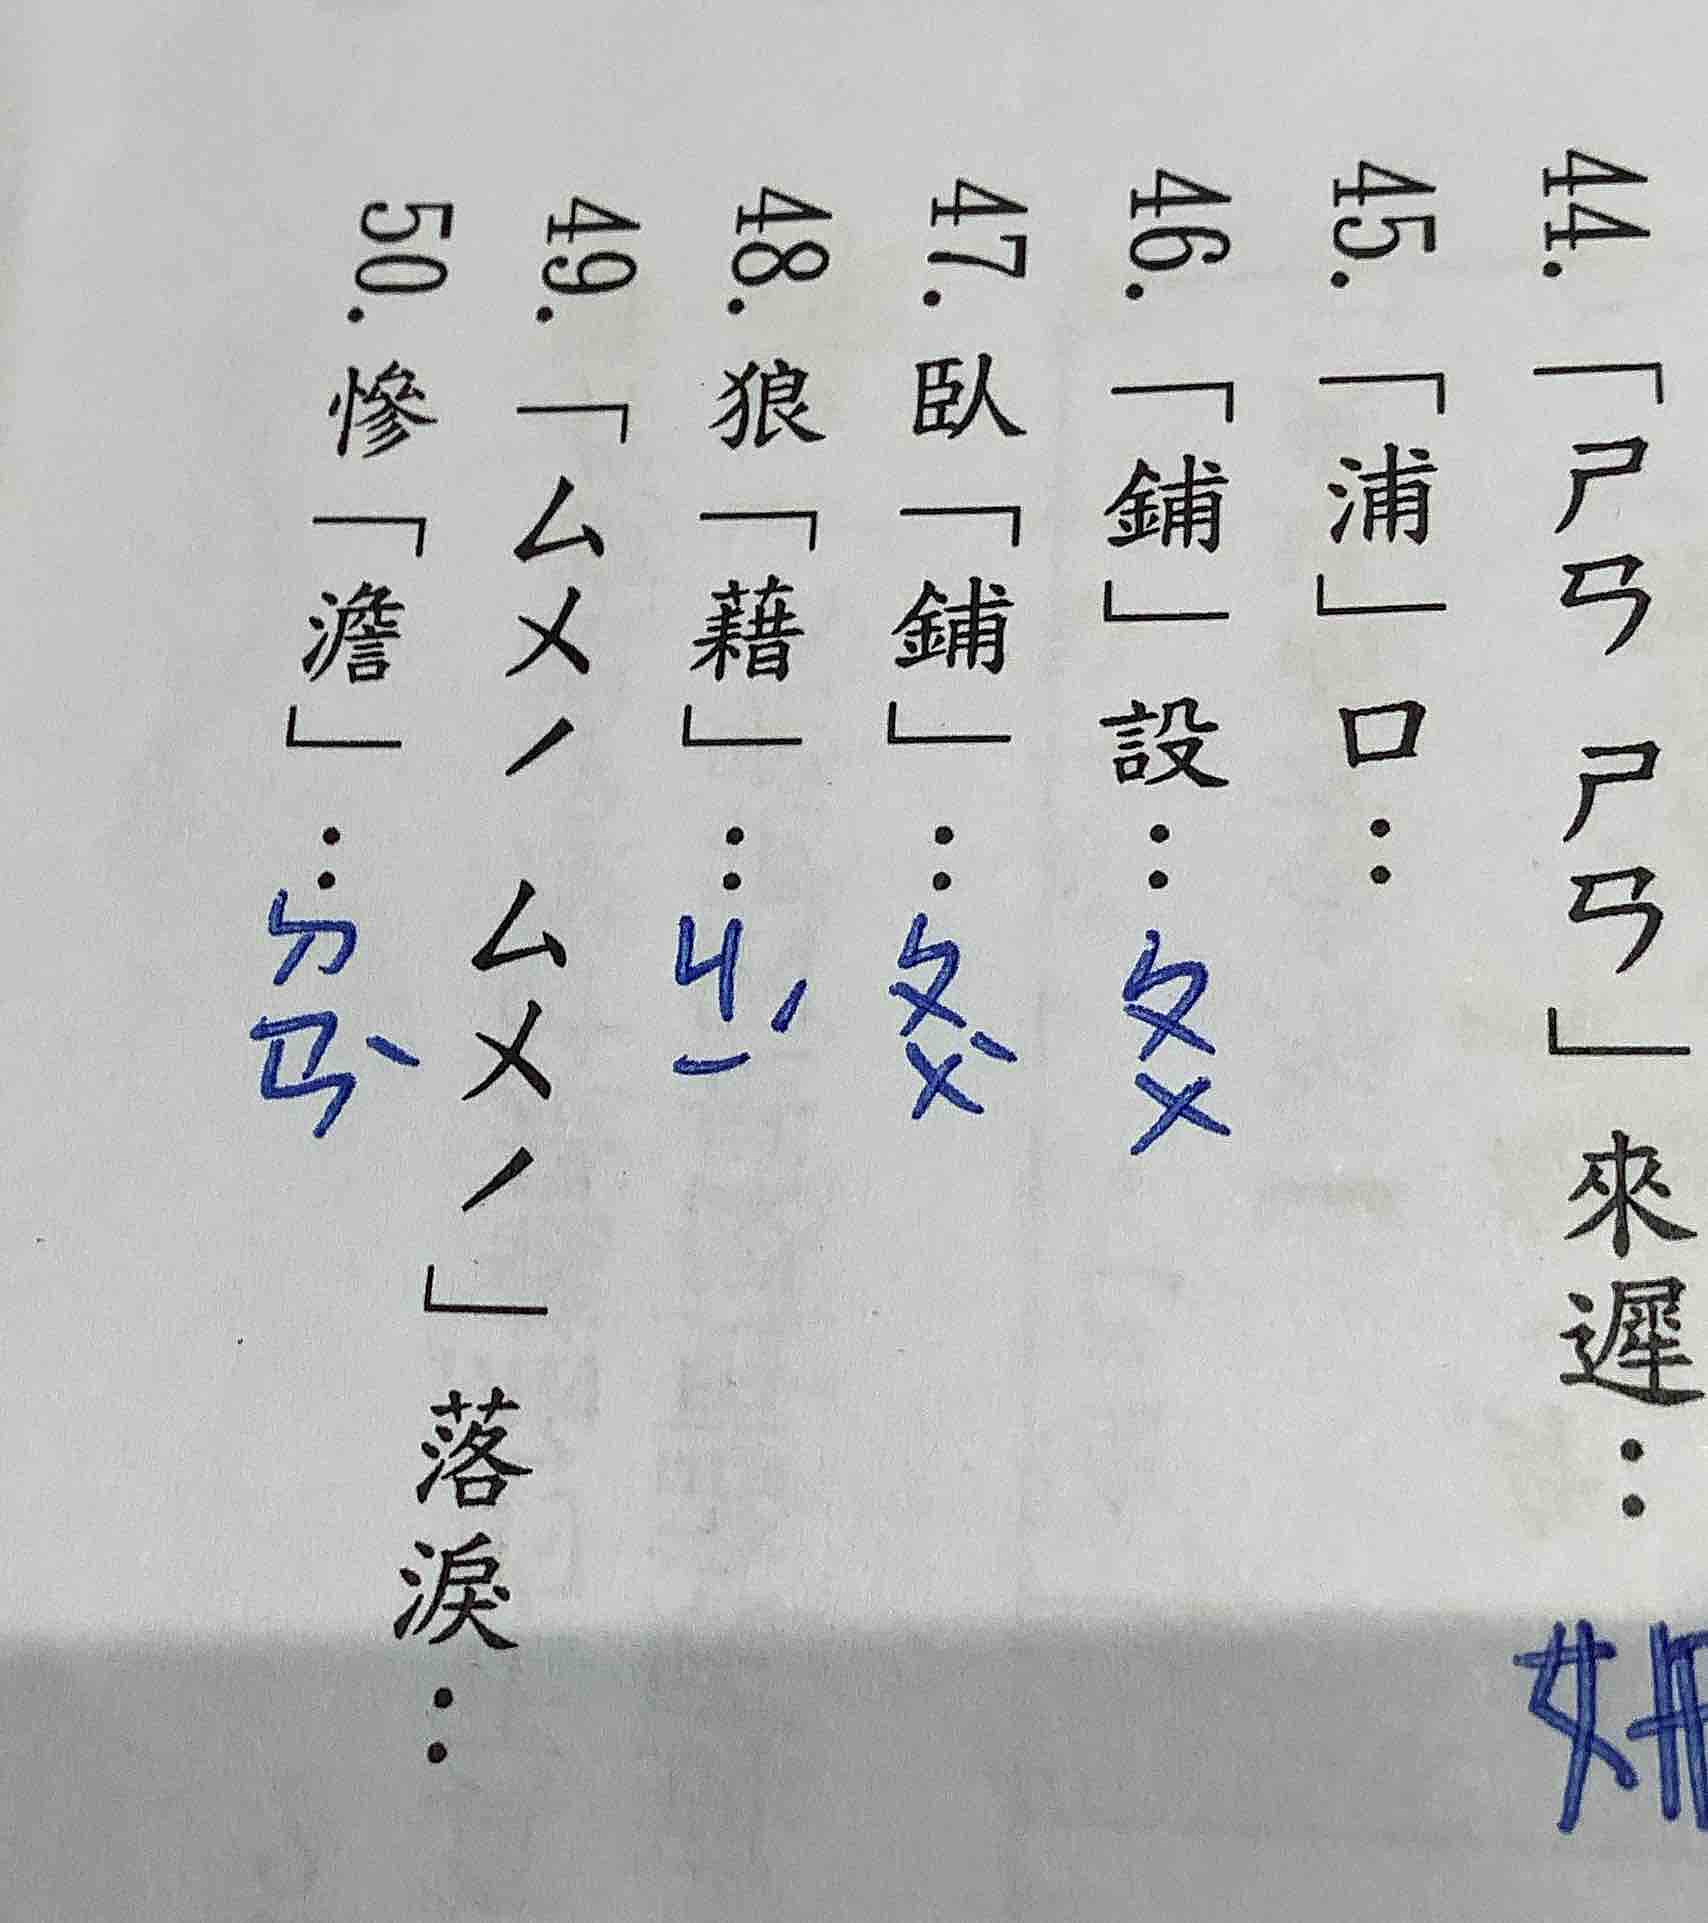 44.「ㄕㄢ ㄕㄢ」來遲：
45.「浦」口：
46.「鋪」設：ㄆㄨ
47.臥「鋪」：ㄆㄨˋ
48.狼「藉」：ㄐㄧˊ
49.「ㄙㄨˊ ㄙㄨˊ」落淚：
50.慘「澹」：ㄉㄢˋ